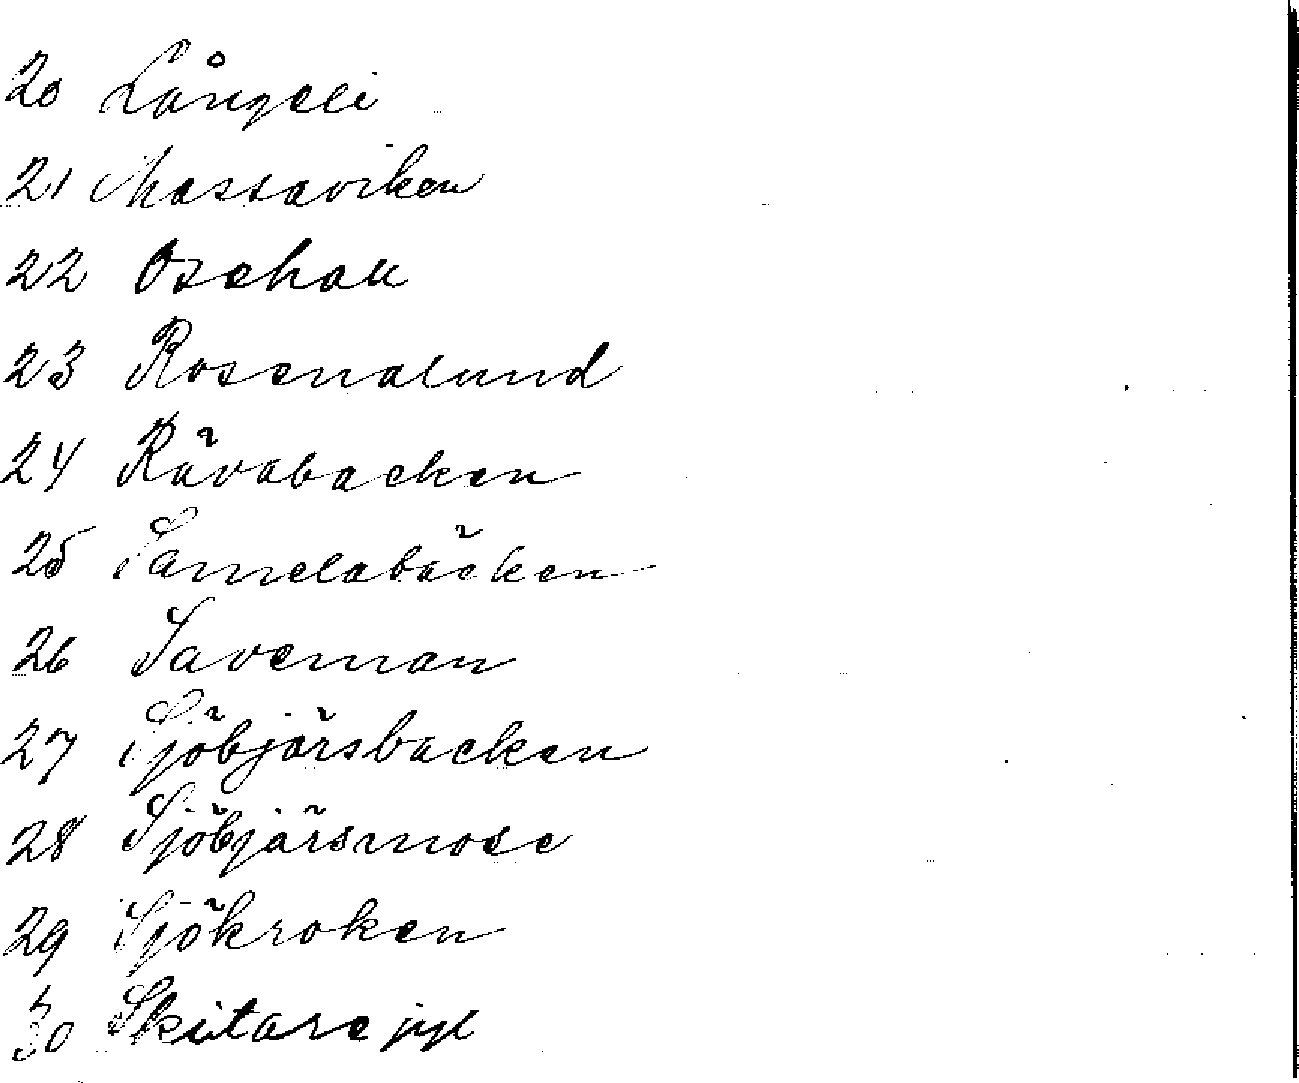 20 Långeli
21 Massaviken
22 Osehall
23 Rosenalund
24 Rävabacken
25 Samelabäcken
26 Saveman
27 Sjöbjärsbacken
28 Sjöbjärsmose
29 Sjökroken
30 Skitare jyl